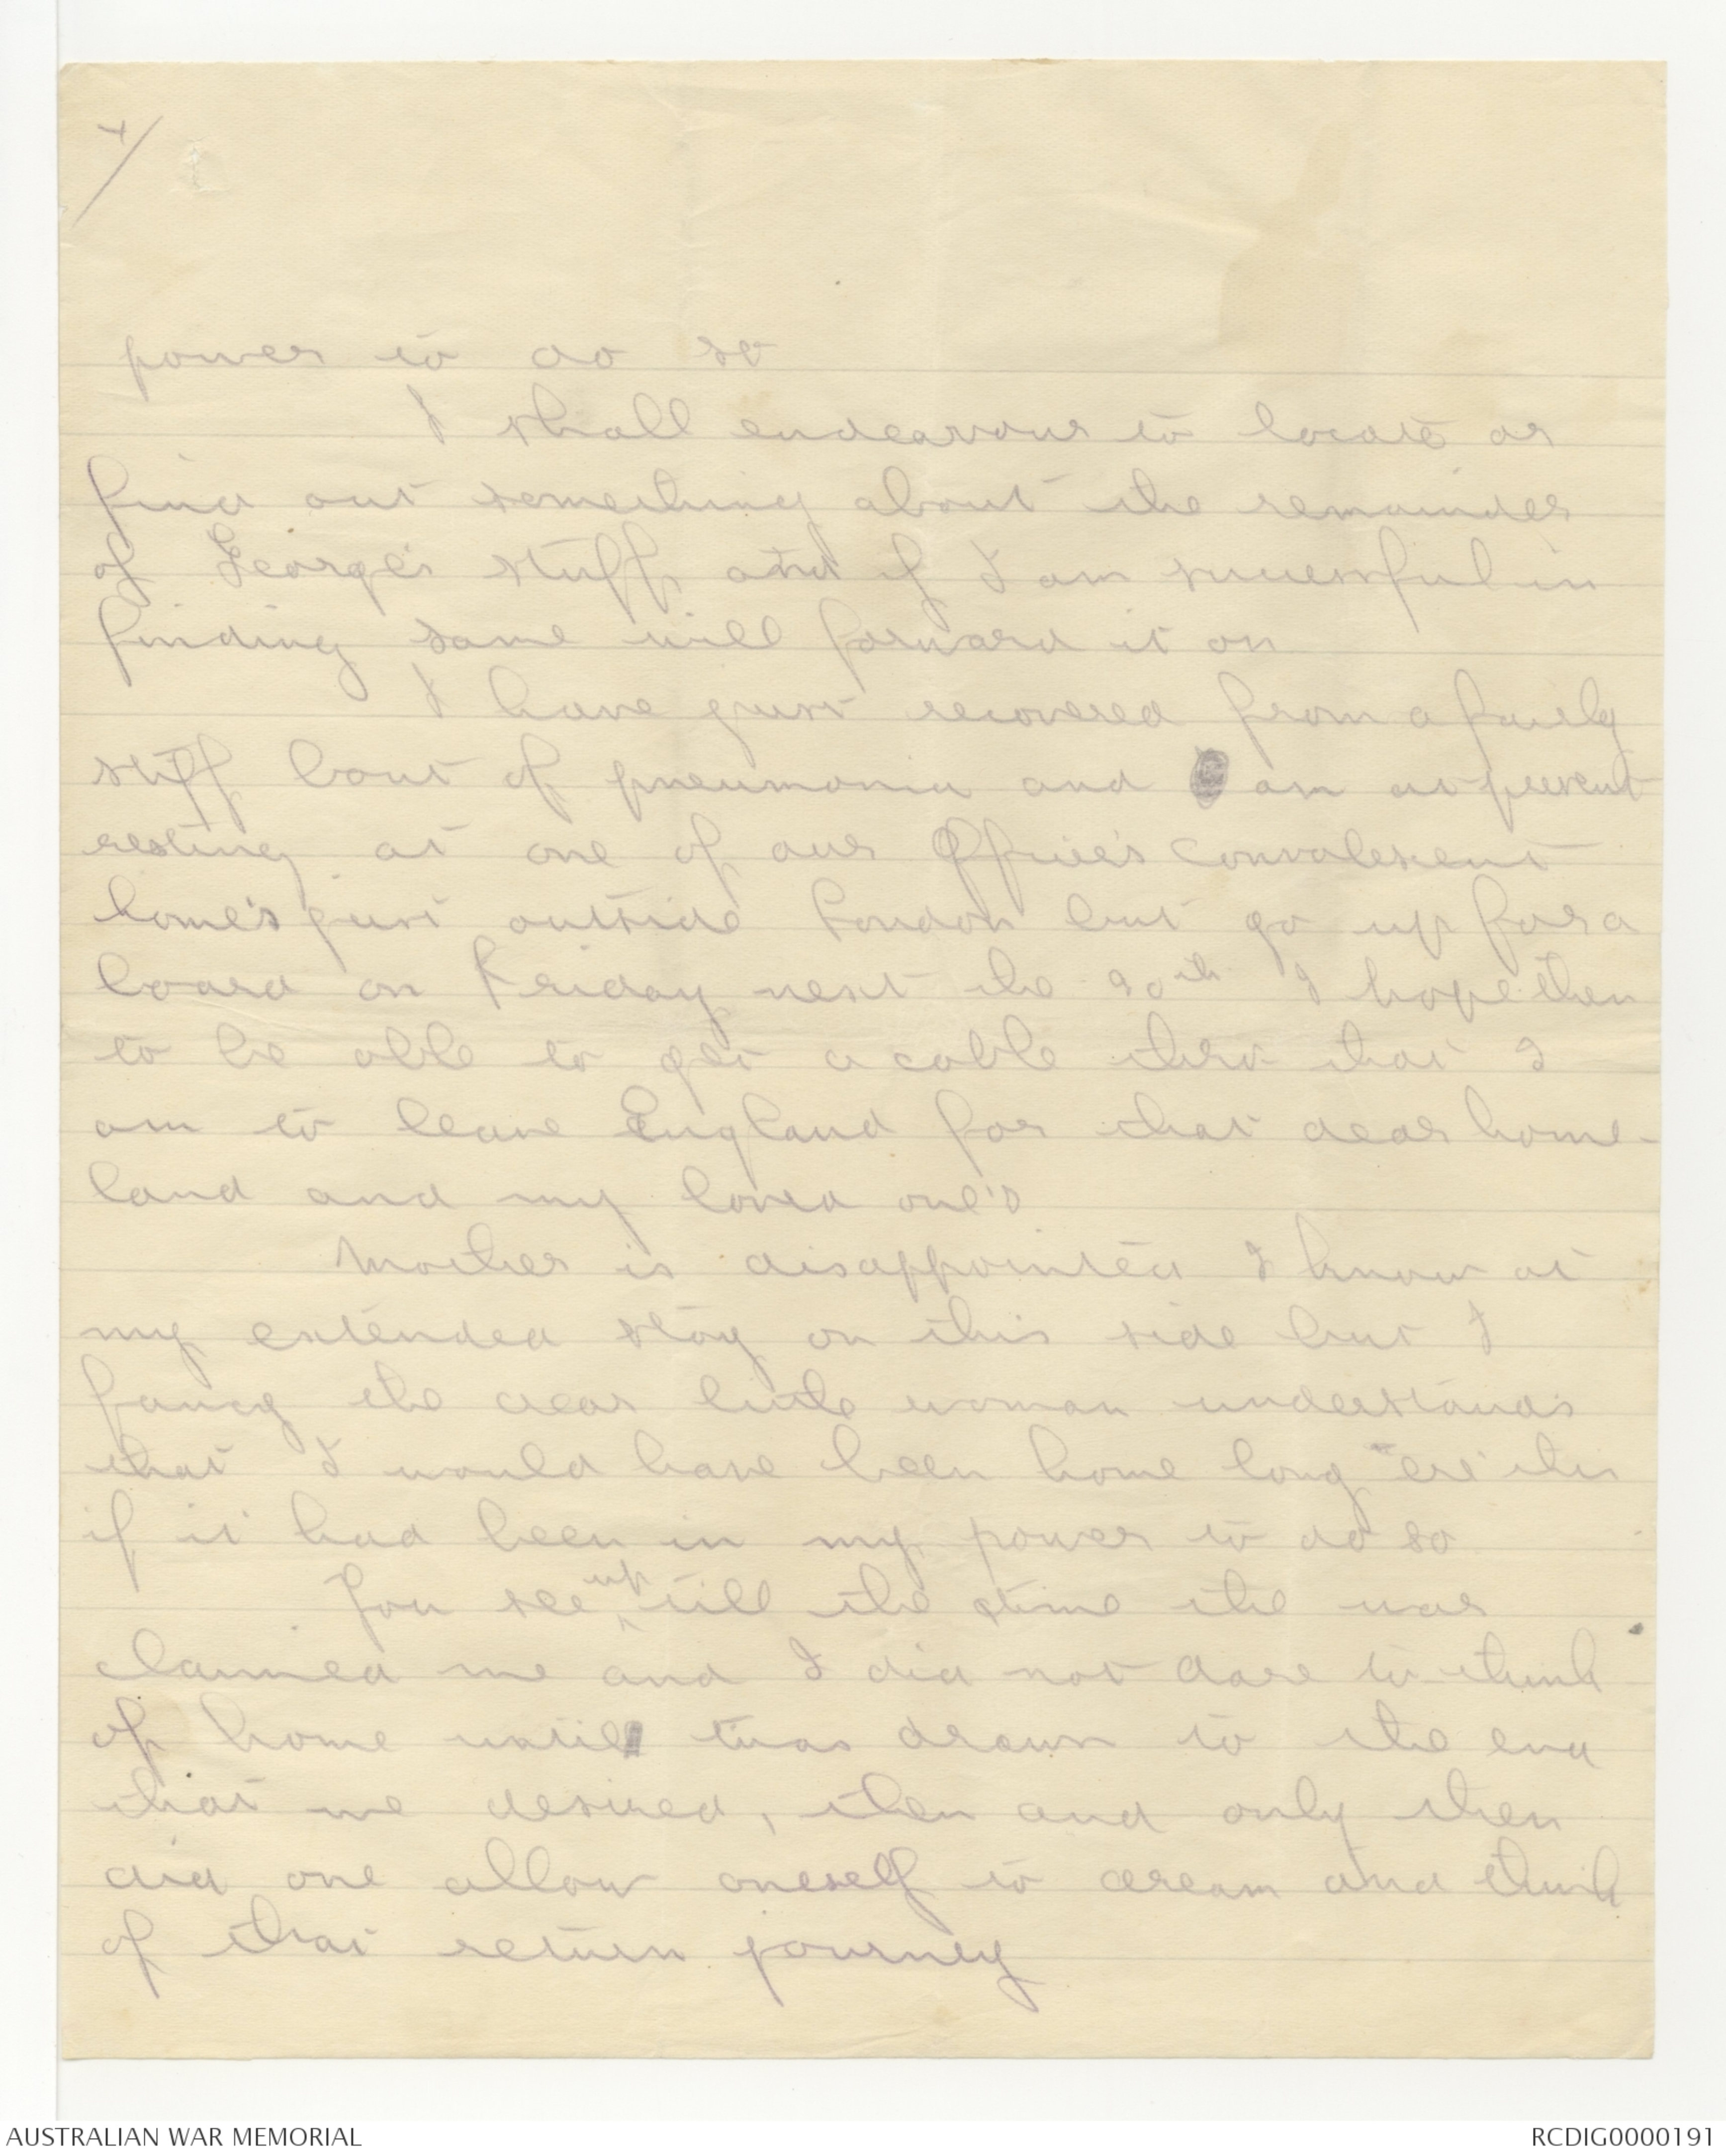 4/
power to do so
I shall endeavour to locate or
find out something about the remainder
of George's stuff, and if I am successful in
finding same will forward it on
I have just recovered from a fairly
stiff bout of pneumonia and am at present
resting at one of our Officer's Convalescent
home's just outside London but go up for a
board on Friday next the 20th I hope then
to be able to get a cable thro that I
am to leave England for that dear home-
land and my loved one's
Mother is disappointed I know at
my extended stay on this side but I
fancy the dear little woman understands
that I would have been home long "ere" this
if it had been in my power to do so
You see up till the time the war
claimed me and I did not dare to think
of home until twas drawn to the end
that we desired, then and only then
did one allow oneself to dream and think
of that return journey
AUSTRALIAN WAR MEMORIAL
RCDIG0000191